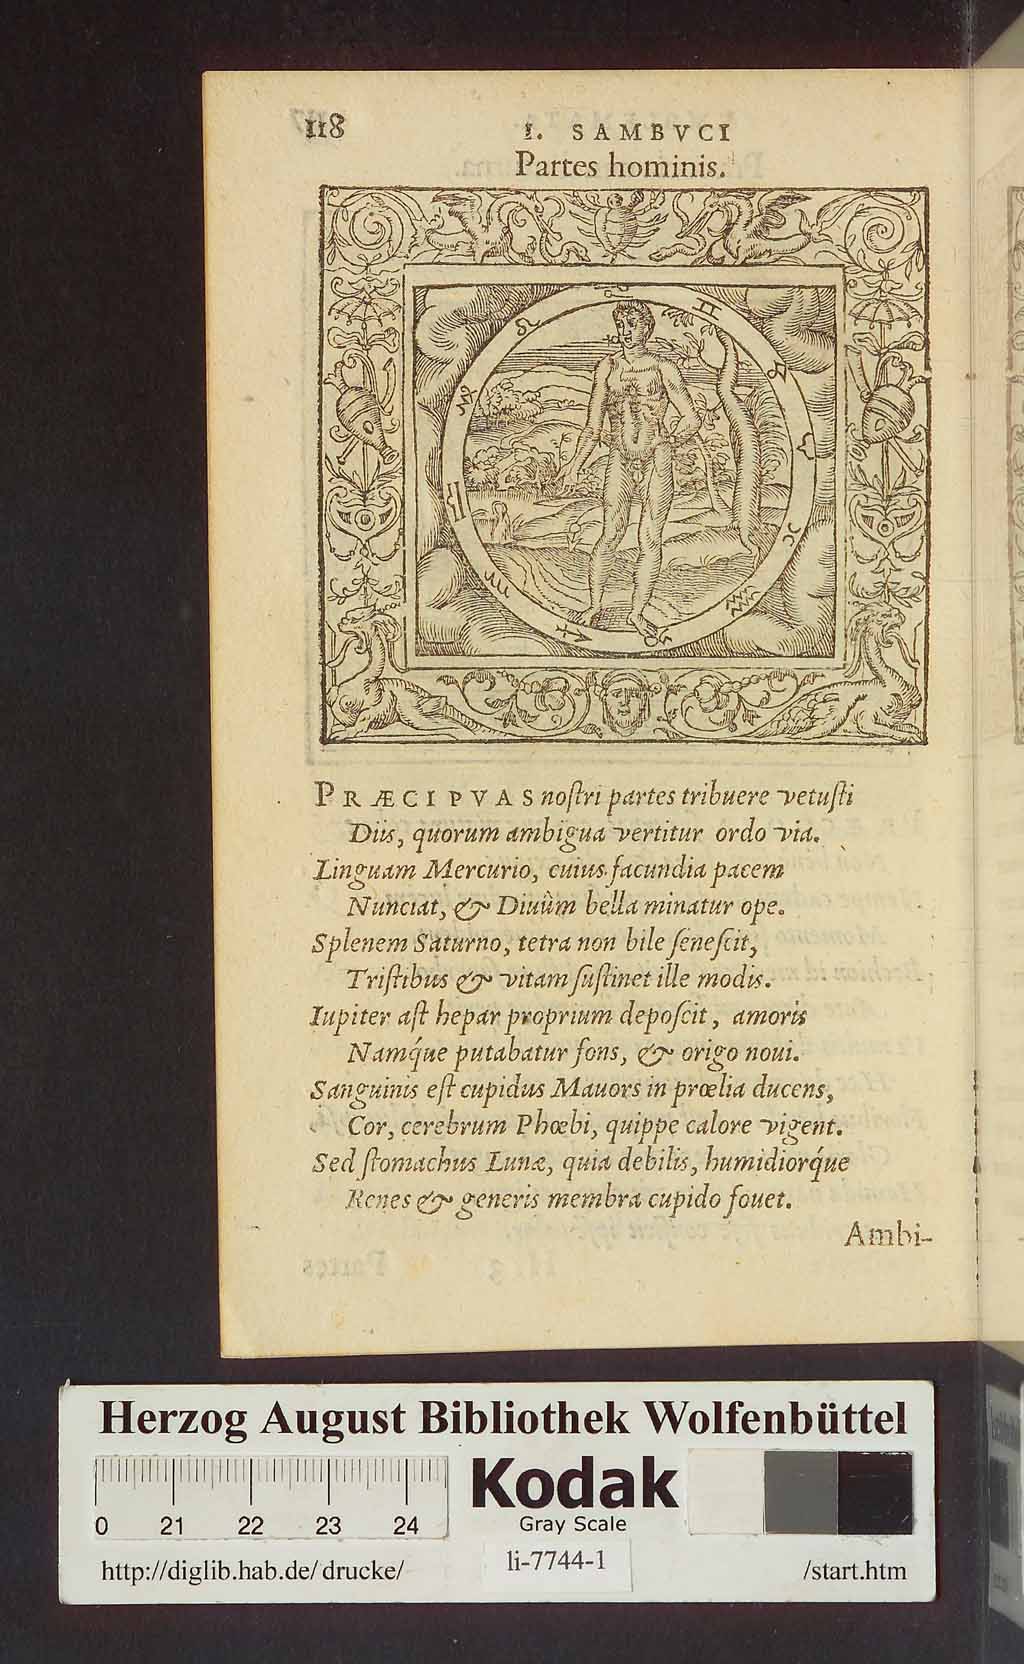 118
I. SAMBVCI
Partes hominis.
PRÆCIPVAS noſtri partes tribuere vetuſti
Diis, quorum ambigua vertitur ordo via.
Linguam Mercurio, cuius facundia pacem
Nunciat, & Diuûm bella minatur ope.
Splenem Saturno, tetra non bile ſeneſcit,
Triſtibus & vitam ſuſtinet ille modis.
Iupiter aſt hepar proprium depoſcit, amoris
Namq́ue putabatur fons, & origo noui.
Sanguinis eſt cupidus Mauors in prœlia ducens,
Cor, cerebrum Phœbi, quippe calore vigent.
Sed ſtomachus Lunæ, quia debilis, humidiorq́ue
Renes & generis membra cupido fouet.
Ambi-
Herzog August Bibliothek Wolfenbüttel
0 21 22 23 24
Kodak
Gray Scale
http://diglib.hab.de/drucke/
li-7744-1
/start.htm